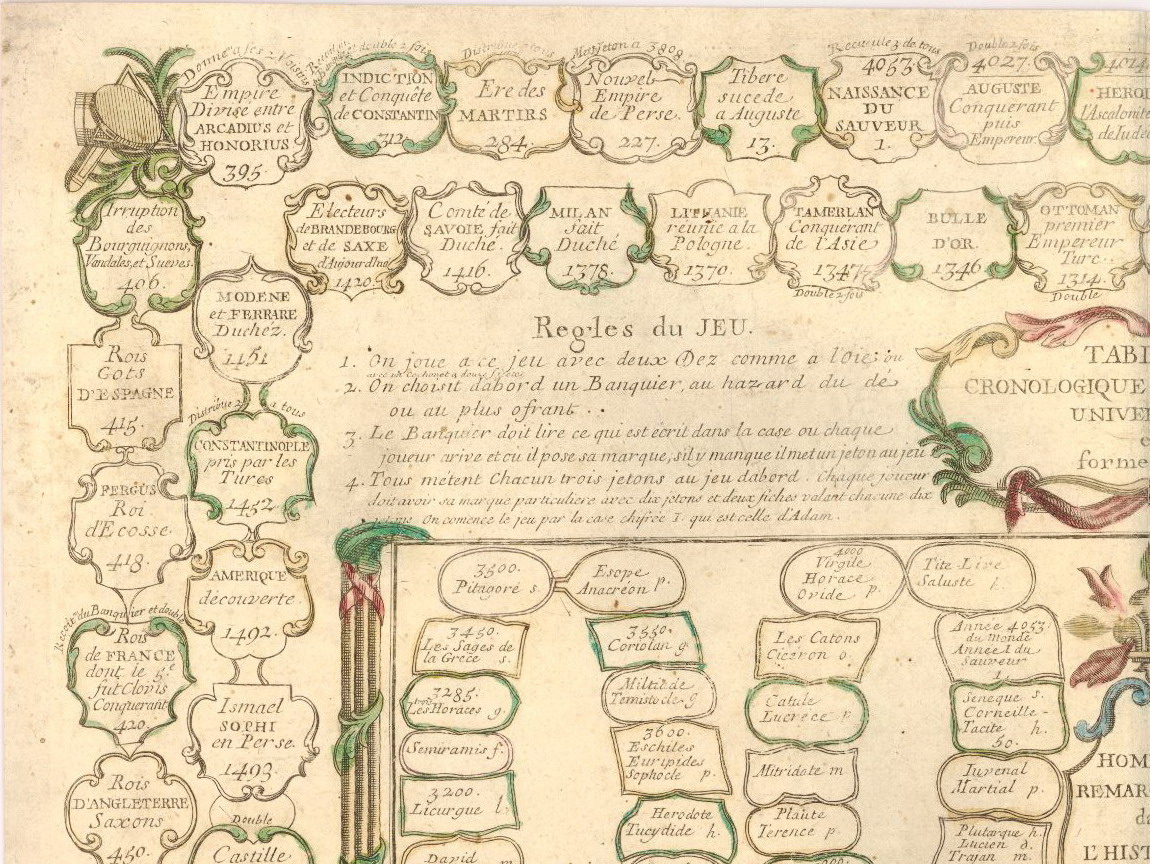 Donnera ses 2 Voisins
Empire
Divisé entre
ARCADIUS et
HONORIUS
395.
double 2 fois
INDICTION
et Conquête
de CONSTANTIN
312.
Ere des
MARTIRS
284.
Met jeton a 3808
Nouvel
Empire
de Perse.
227.
Tibere
sucede
a Auguste
13.
Recueille 3 de tous
4053.
NAISSANCE
DU
SAUVEUR
1.
Double 2 fois
4027.
AUGUSTE
Conquerant
puis
Empereur.
HEROD
l'Ascalonite
de Iudée
Irruption
des
Bourguignons,
Vandales, et Sueves.
406.
Electeurs
de BRANDEBOURG
et de SAXE
d'Aujourd'huy
1420.
Comté de
SAVOIE fait
Duché.
1416.
MILAN
fait
Duché
1378.
LITUANIE
réunie a la
Pologne.
1370.
TAMERLAN
Conquerant
de l'Asie
Double 2 fois
BULLE
D'OR.
1346.
OTTOMAN
premier
Empereur
Turc.
1314.
Double
MODENE
et FERRARE
Duchez.
1451
Rois
Gots
D'ESPAGNE
415.
Distribüe 2 a tous
CONSTANTINOPLE
pris par les
Turcs
1452
FERGUS
Roi
d'Ecosse
418.
AMERIQUE
découverte.
1492.
Recoit du Banquier et double
Rois
de FRANCE
dont le 5.e
fut Clovis
Conquerant
420.
Ismael
SOPHI
en Perse.
1493.
Rois
D'ANGLETERRE
Saxons
450.
Double
Castille
Regles du JEU.
1. On joue a ce jeu avec deux Dez comme a l'Oie; ou
2. On choisit d'abord un Banquier, au hazard du dé
ou au plus ofrant..
3. Le Banquier doit lire ce qui est écrit dans la case ou chaque
joueur arive et ou il pose sa marque, s'il y manque il met un jeton au jeu
4. Tous métent Chacun trois jetons au jeu d'abord. Chaque joueur
doit avoir sa marque particuliere avec dix jetons et deux fiches valant chacune dix
On comence le jeu par la case chifrée 1. qui est celle d'Adam.
TABL
CRONOLOGIQUE
UNIVER
forme
3500.
Pitagore s
Esope
Anacréon p.
4000
Virgile
Horace
Ovide p.
Tite Live
Saluste
3450.
Les Sages de
la Grece s.
3550.
Coriolan g.
Les Catons
Ciceron o.
Année 4053.
du Monde
Année 1 du
Sauveur
1.
3285.
Les Horaces g
Miltiade
Temistocle g
Catule
Lucrece p.
Seneque s.
Corneille-
Tacite h.
50.
Semiramis f.
3600.
Eschiles
Euripides
Sophocle p.
Mitridate m
Iuvenal
Martial p.
3200.
Licurgue l.
Herodote
Tucydide h.
Plaute
Terence p.
Plutarque h.
Lucien o.
Trajan m.
David m
HOM
REMAR
da
L'HIST